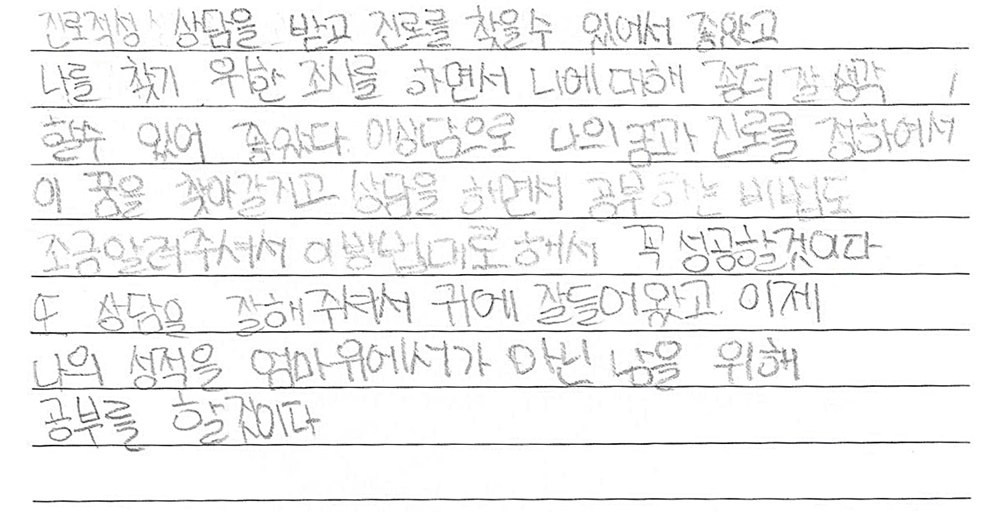 진로적성 상담을 받고 진로를 찾을수 있어서 좋았고
나를 찾기 위한 조사를 하면서 나에대해 좀더 잘 생각
할수 있어 좋았다. 이상담으로 나의꿈과 진로를 정하여서
이 꿈을 찾아갈거고 상담을 하면서 공부하는 방법도
조금알려주셔서 이방법대로 해서 꼭 성공할것이다
또 상담을 잘해주셔서 귀에 잘들어왔고. 이제
나의 성적을 엄마위에서가 아닌 남을 위해
공부를 할것이다